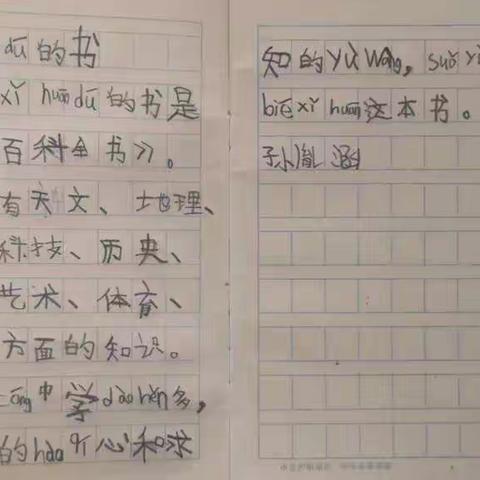 dú的书
xǐ huān dú的书是
百科全书》。
有天文、地理、
科技、历史、
艺术、体育、
方面的知识。
cóng中学dào hěn多，
的hào奇心和求
知的yù wàng，suǒ yǐ
bié xǐ huān这本书。
孙胤涵